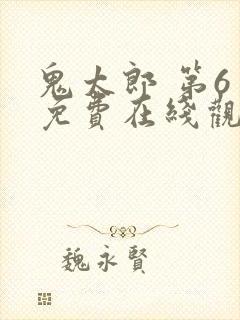 鬼太郎 第6
免費在綫觀
魏永賢